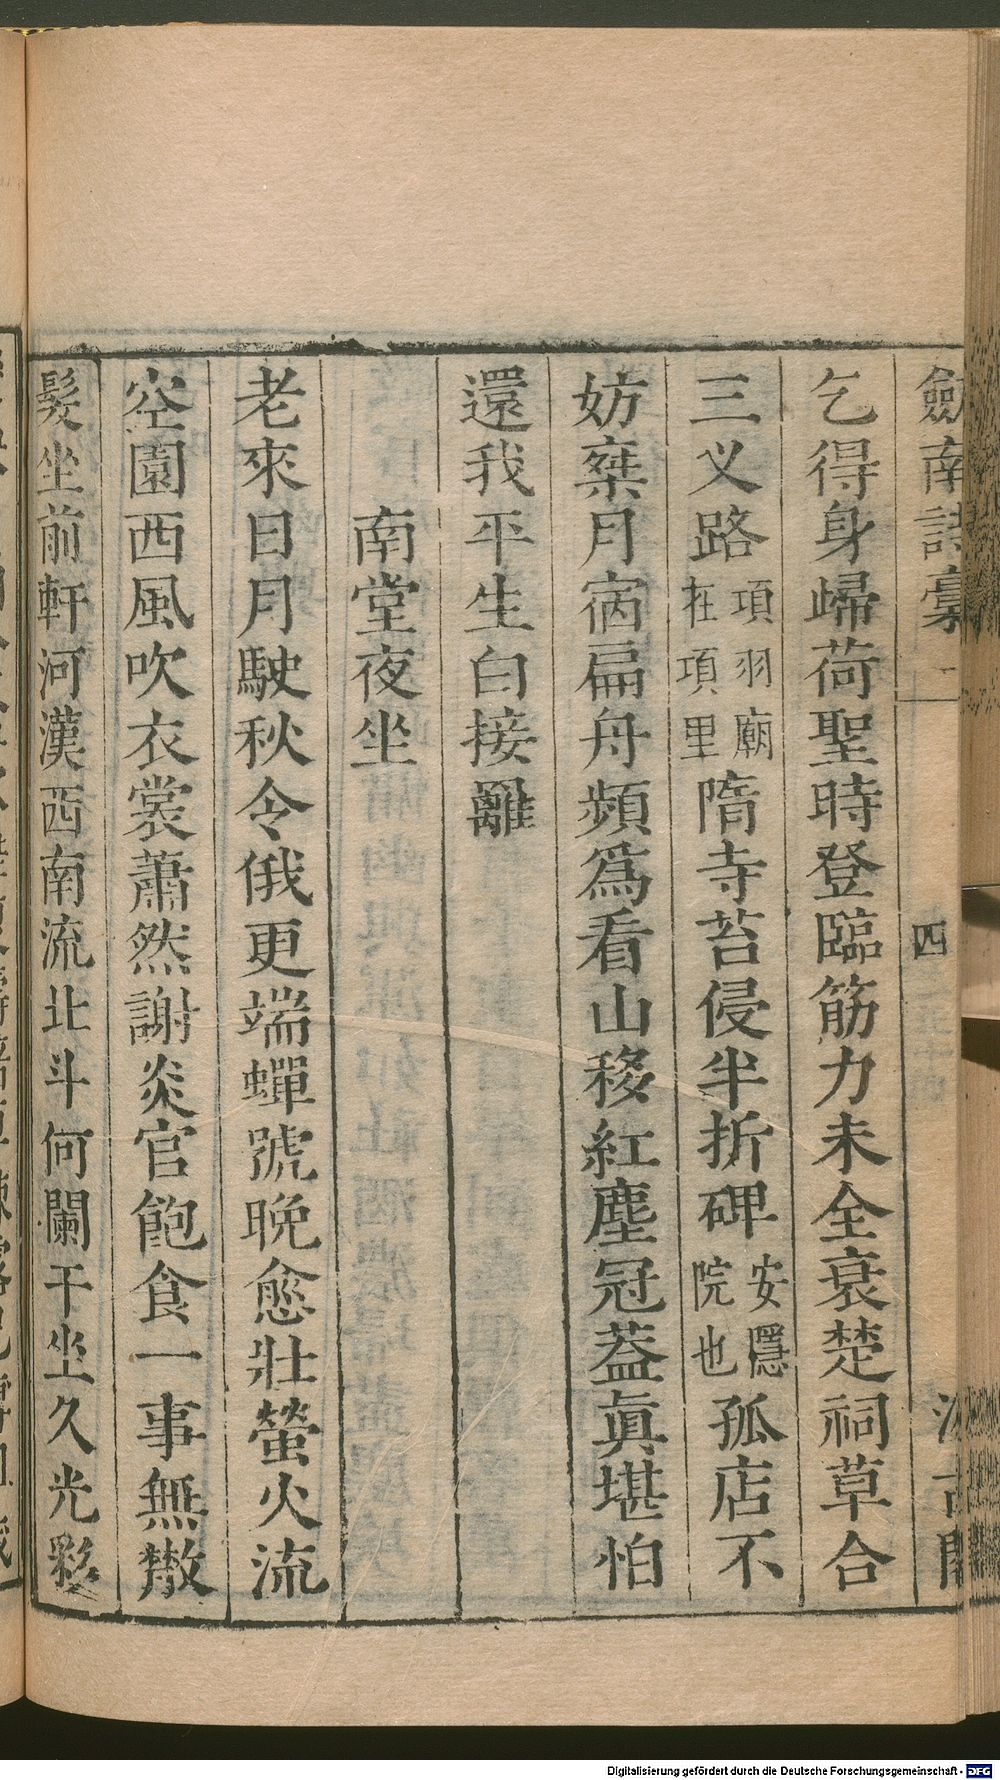 劔南詩藁 四
乞得身歸荷聖時登臨筋力未全衰楚祠草合
三义路項羽廟在項里隋寺苔侵半折碑安隱院也孤店不
妨桒月宿扁舟頻爲看山移紅塵冠葢眞堪怕
還我平生白接䍦
南堂夜坐
老來日月駛秋令俄更端蟬號晚愈壯螢火流
空園西風吹衣裳蕭然謝炎官飽食一事無散
髮坐前軒河漢西南流北斗何闌干坐久光彩
Digitalisierung gefördert durch die Deutsche Forschungsgemeinschaft - DFG